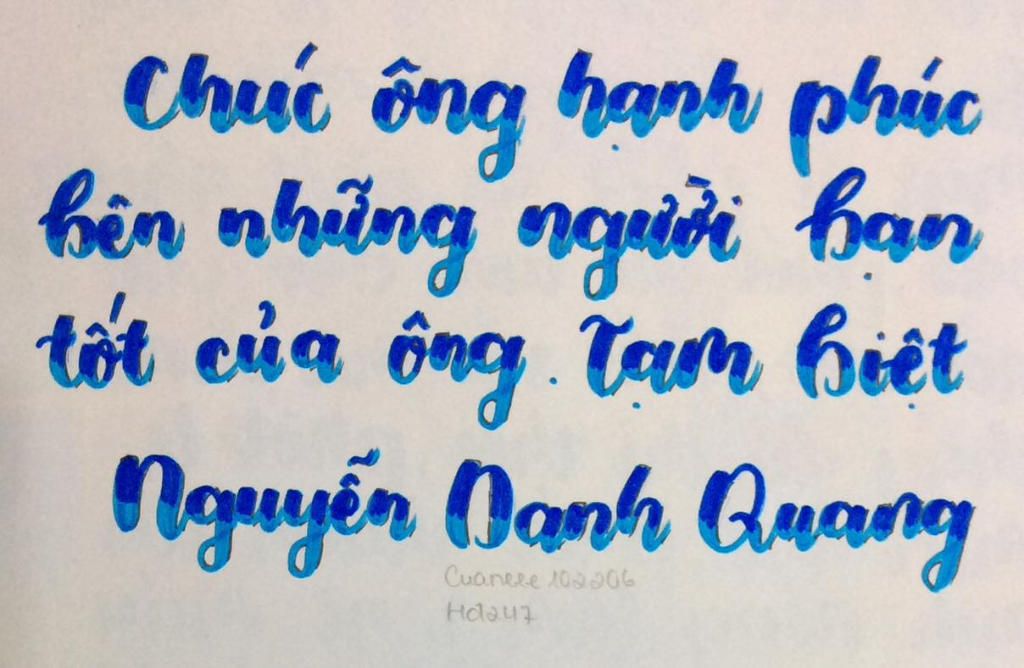 Chúc ông hạnh phúc
bên những người bạn
tốt của ông. Tạm biệt
Nguyễn Danh Quang
Cuaneee 102206
Hd247